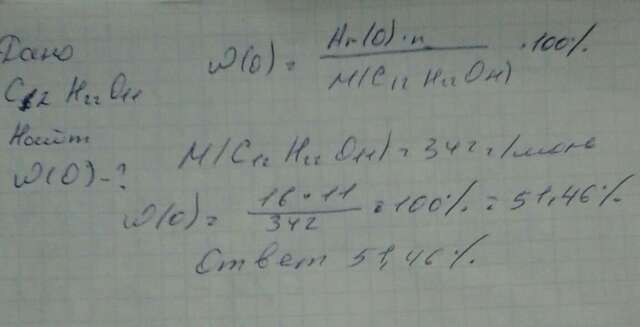 Дано
C12 H22 O11
Найти
ω(O)-?
ω(O) = Ar(O)·n / M(C12 H22 O11) ·100%
M(C12 H22 O11) = 342 г/моль
ω(O) = 16·11 / 342 · 100% = 51,46%
Ответ 51,46%